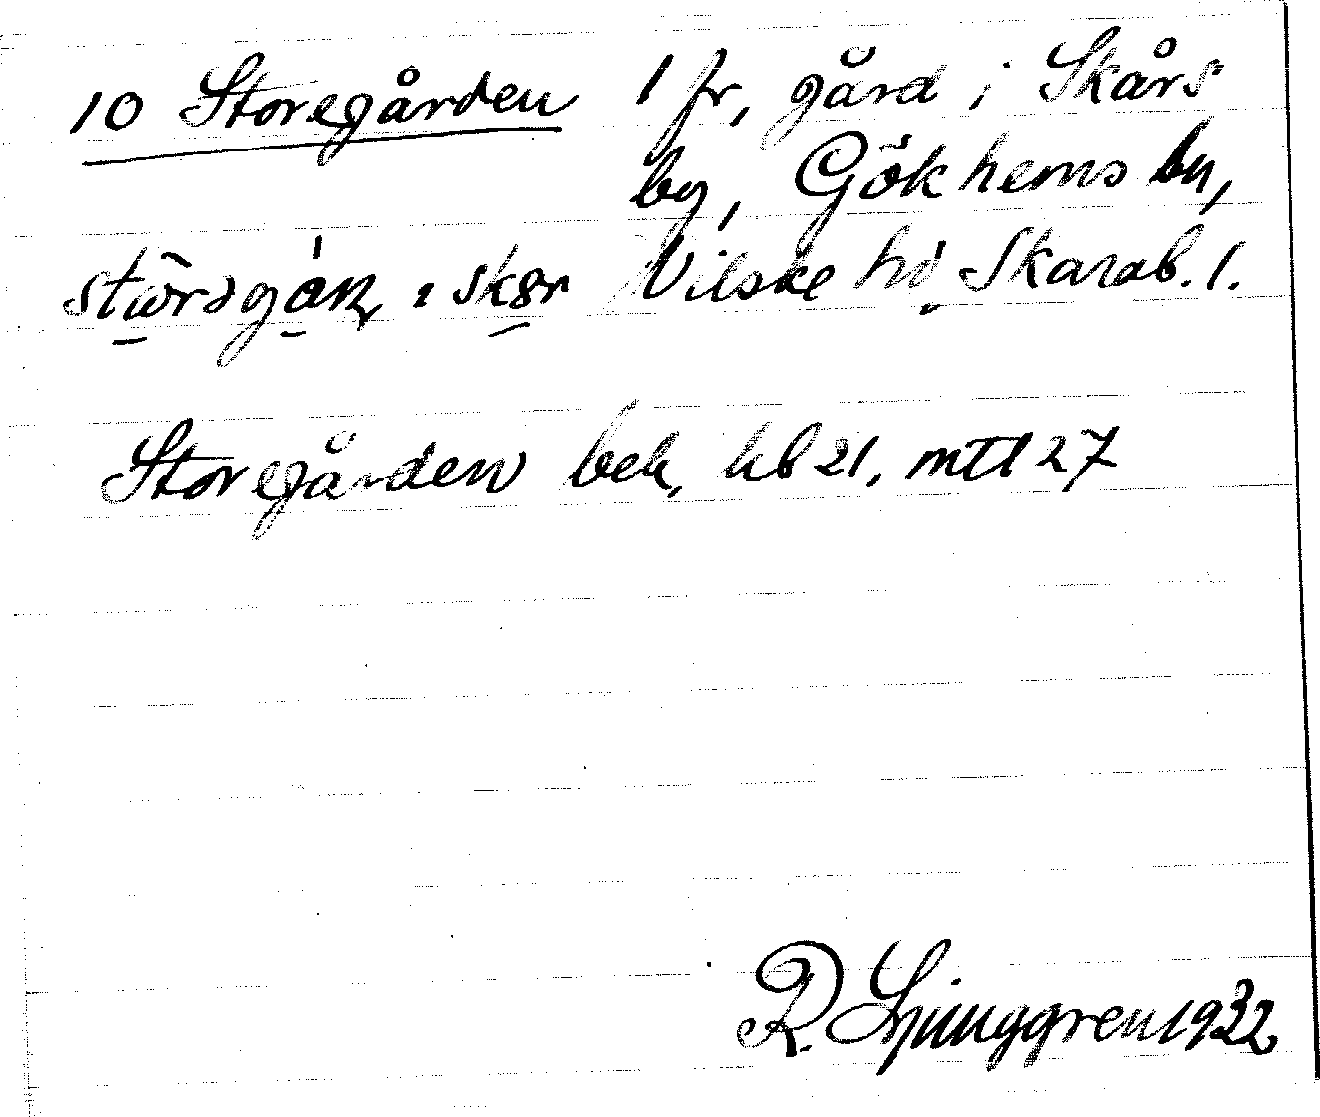 10 Storegården 1 fr, gård i Skårs
by, Gökhems sn,
Vilske hd. Skarab. l.
Storegården bek, hb 21, mtl 27
R. Ljunggren 1932